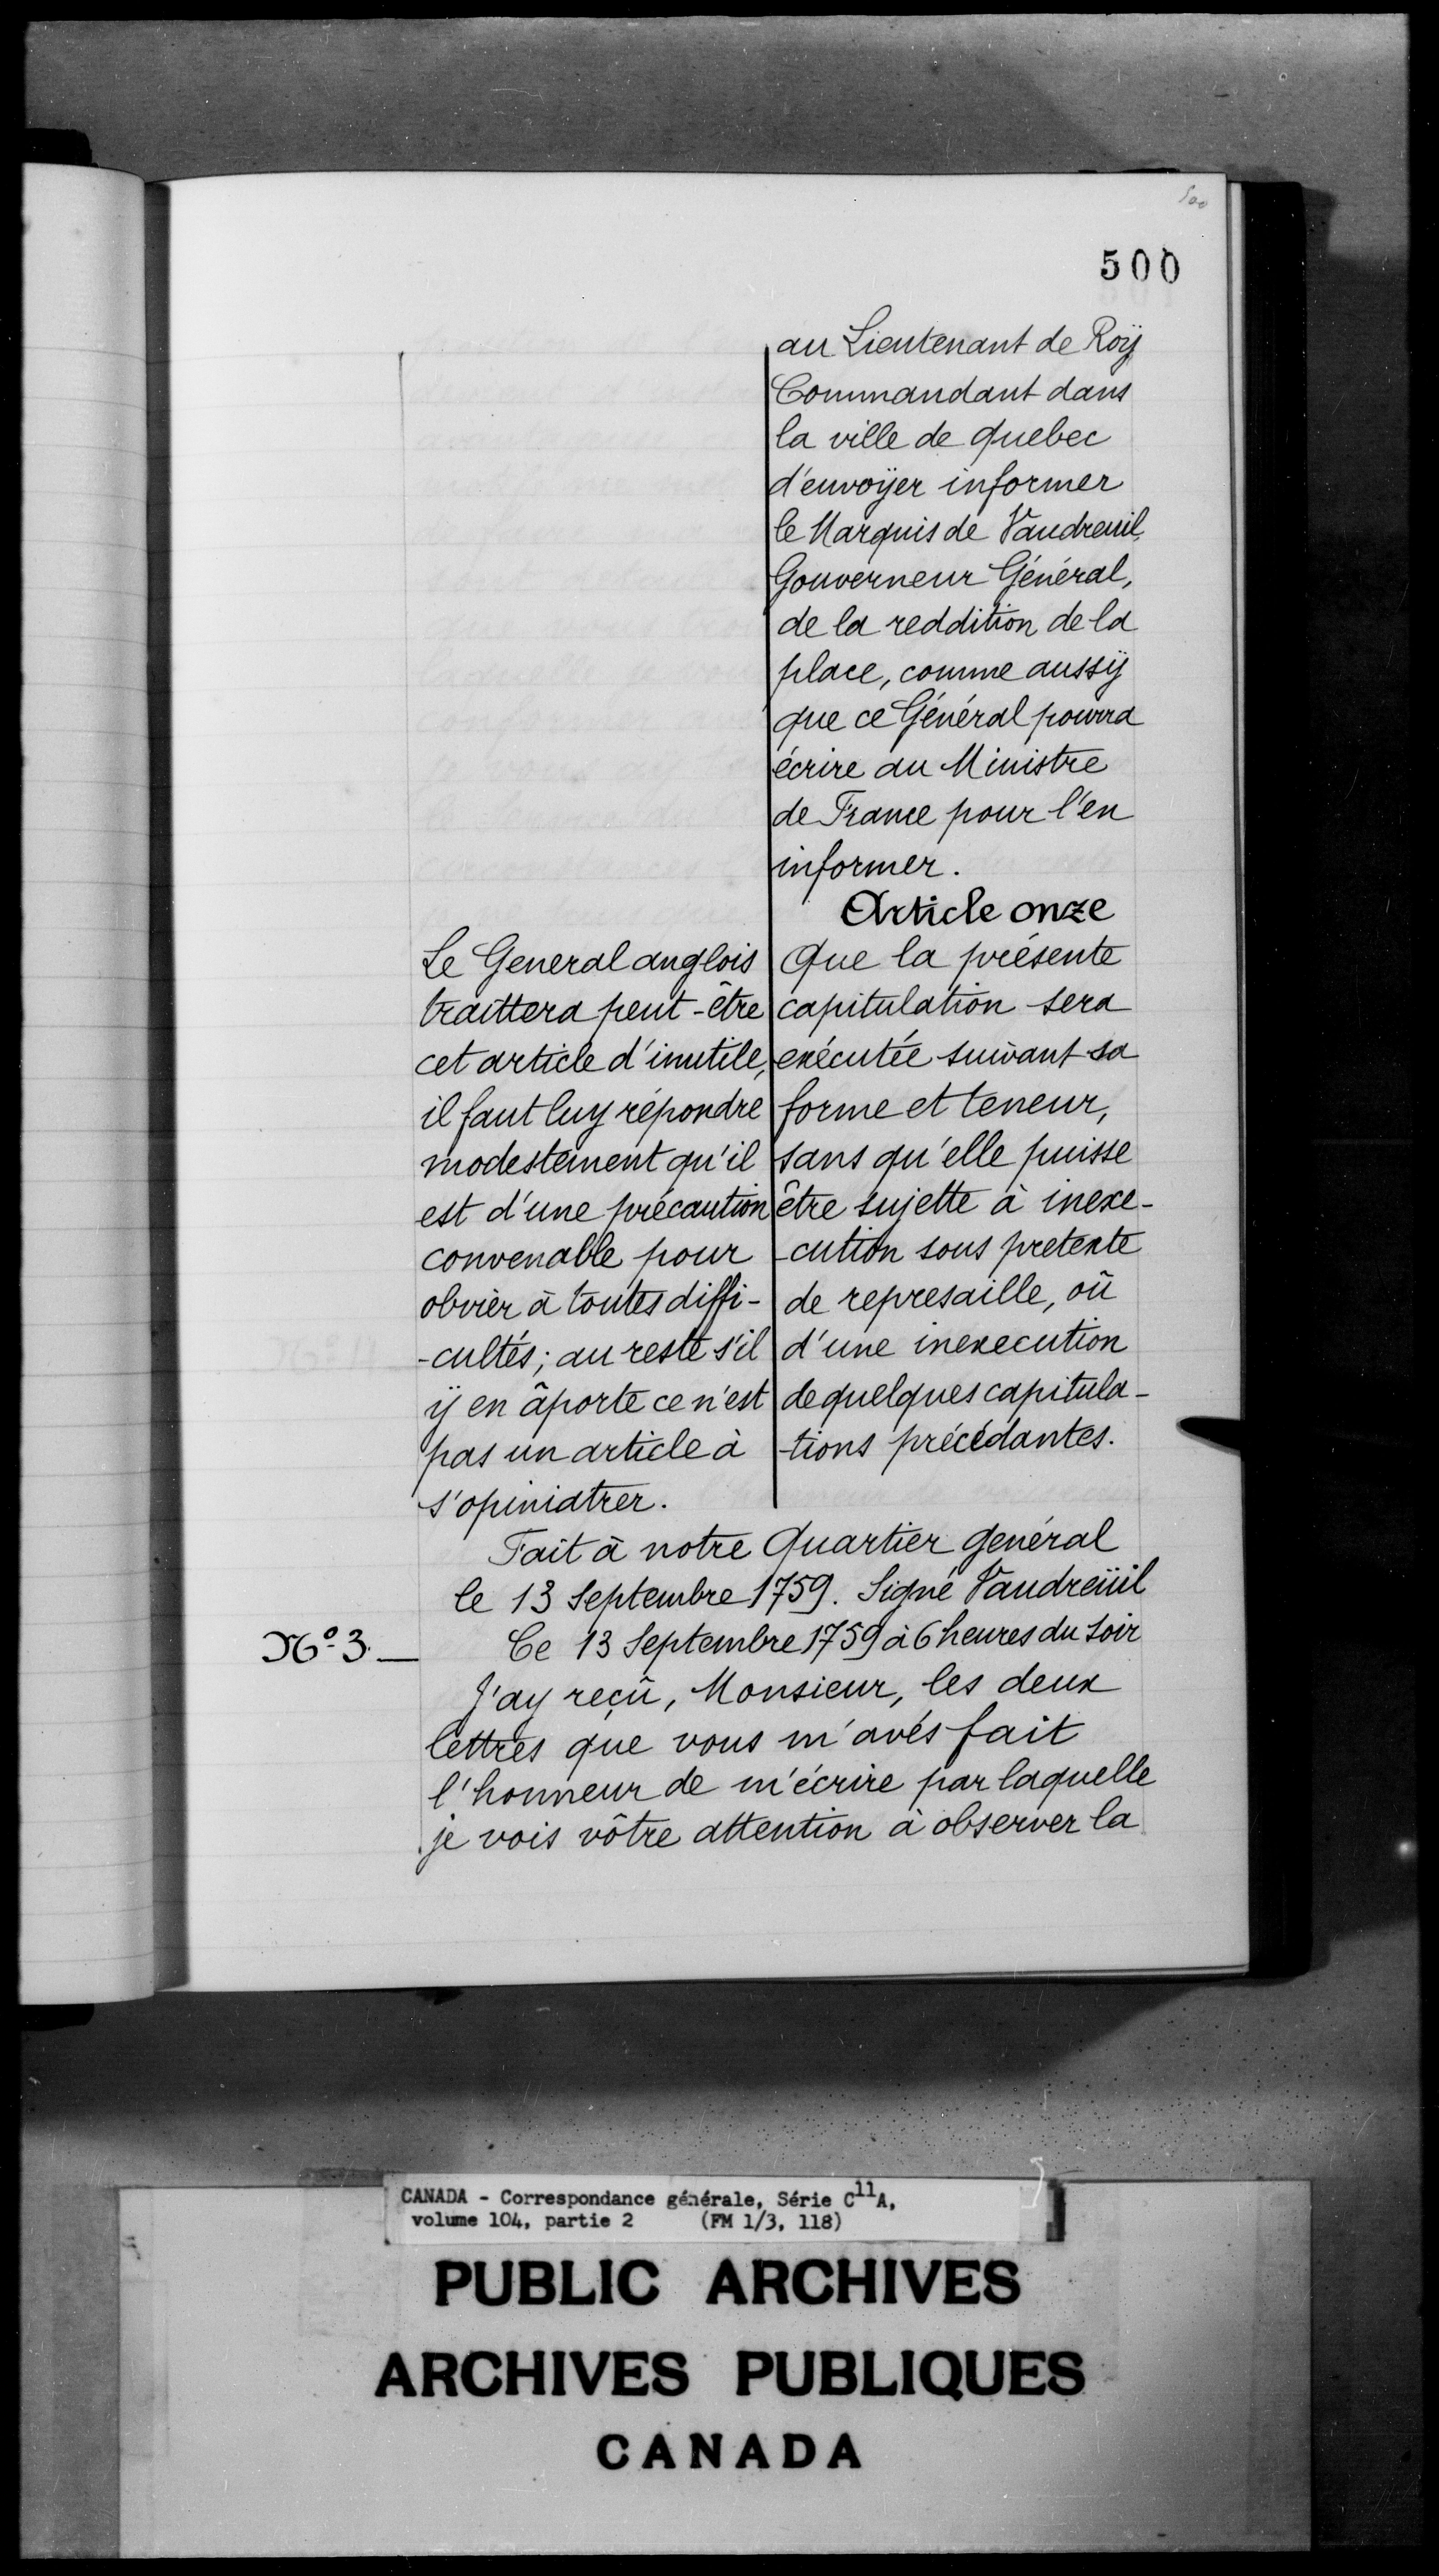 500
500
au Lieutenant de Roÿ
Commandant dans
la ville de quebec
d'envoÿer informer
le Marquis de Vaudreuil
Gouverneur Général,
de la reddition de la
place, comme aussÿ
que ce Général pourra
écrire au Ministre
de France pour l'en
informer.
Article onze
Que la présente
capitulation sera
exécutée suivant sa
forme et teneur,
sans qu'elle puisse
être sujette à inexe-
-cution sous pretexte
de represaille, où
d'une inexecution
de quelques capitula-
-tions précédantes.
Le General anglois
traittera peut-être
cet article d'inutile,
il faut luy répondre
modestement qu'il
est d'une précaution
convenable pour
obvier à toutes diffi-
-cultés; au reste s'il
ÿ en âporte ce n'est
pas un article à
s'opiniatrer.
Fait à notre Quartier general
le 13 Septembre 1759. Signé Vaudreüil
Nº 3.
Ce 13 Septembre 1759 à 6 heures du soir
J'ay reçû, Monsieur, les deux
lettres que vous m'avés fait
l'honneur de m'écrire par laquelle
je vois vôtre attention à observer la
CANADA - Correspondance générale, Série C11A,
volume 104, partie 2 (FM 1/3, 118)
PUBLIC ARCHIVES
ARCHIVES PUBLIQUES
CANADA